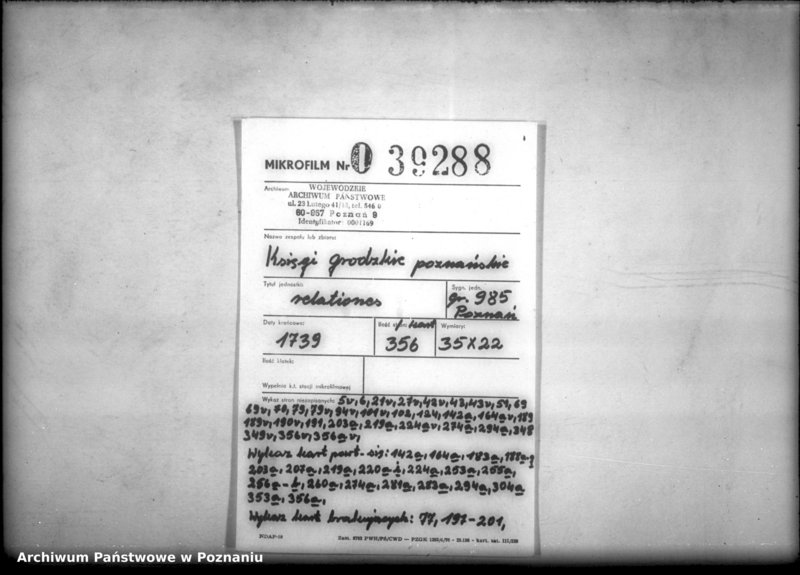 MIKROFILM Nr 0 39288
Archiwum:
WOJEWÓDZKIE
ARCHIWUM PAŃSTWOWE
ul. 23 Lutego 41/43, tel. 546 0
60-967 Poznań 9
Identyfikator 0001169
Nazwa zespołu lub zbioru:
Księgi grodzkie poznańskie
Tytuł jednostki: Sygn. jedn.
relationes gr. 985
Poznań
Daty krańcowe: Ilość stron/kart Wymiary:
1739 356 35x22
Ilość klatek:
Wypełnia k.t. stacji mikrofilmowej
Wykaz stron niezapisanych: 5v, 6, 21v, 27v, 42v, 43, 43v, 51, 69
69v, 70, 79, 79v, 94v, 101v, 102, 124, 142a, 164av, 189
189v, 190v, 191, 203a, 219a, 224av, 274a, 294a, 348
349v, 356v, 356av,
Wykaz kart powt. się: 142a, 164a, 183a, 188a-g
203a, 207a, 219a, 220a-b, 224a, 253a, 255a,
256a-b, 260a, 274a, 281a, 283a, 294a, 304a
353a, 356a,
Wykaz kart brakujących: 77, 197-201,
NDAP-10
Archiwum Państwowe w Poznaniu